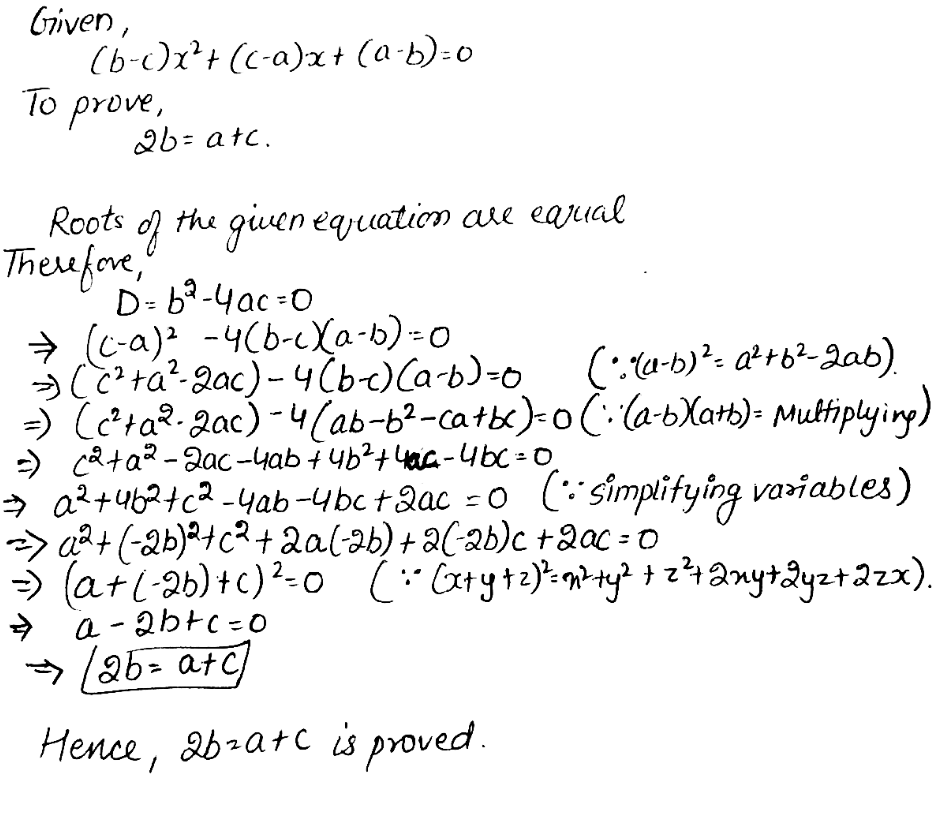 Given,
(b-c)x²+ (c-a)x+ (a-b)=0
To prove,
2b= a+c.
Roots of the given equation are equal
Therefore,
D= b²-4ac=0
⇒ (c-a)² -4(b-c)(a-b)=0
⇒ (c²+a²-2ac)-4(b-c)(a-b)=0 (∵(a-b)²= a²+b²-2ab).
⇒ (c²+a²-2ac)-4(ab-b²-ca+bc)=0 (∵(a-b)(a+b)= Multiplying)
⇒ c²+a²-2ac-4ab+4b²+4ac-4bc=0
⇒ a²+4b²+c²-4ab-4bc+2ac=0 (∵ simplifying variables)
⇒ a²+(-2b)²+c²+2a(-2b)+2(-2b)c+2ac=0
⇒ (a+(-2b)+c)²=0 (∵ (x+y+z)²=x²+y²+z²+2xy+2yz+2zx).
⇒ a-2b+c=0
⇒ 2b= a+c
Hence, 2b=a+c is proved.